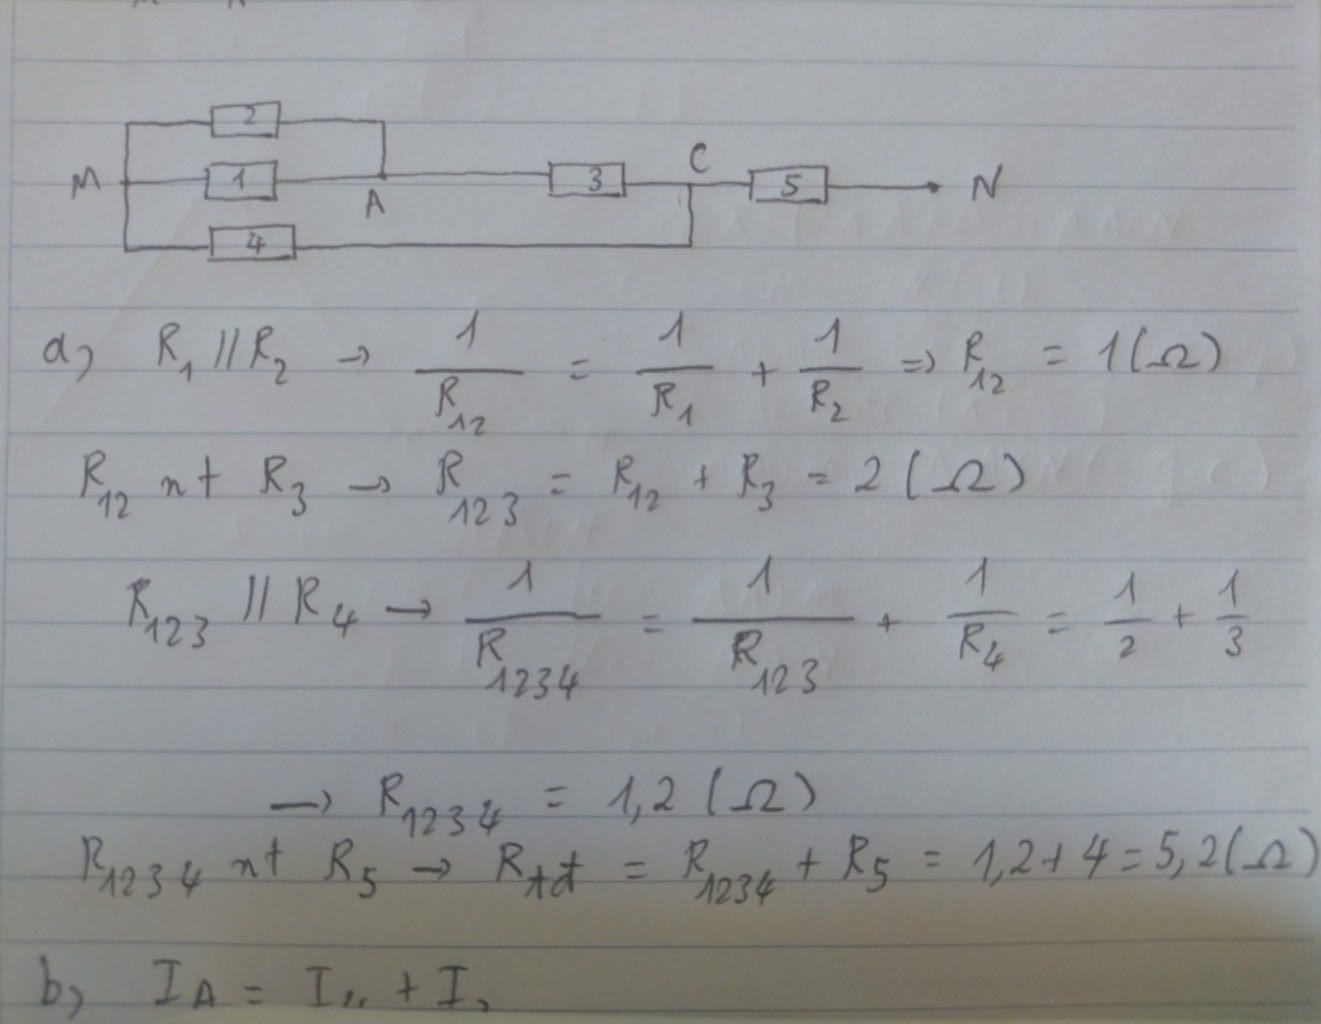 2
M 1 A 3 C 5 N
4
a, R₁ // R₂ → 1/R₁₂ = 1/R₁ + 1/R₂ => R₁₂ = 1 (Ω)
R₁₂ nt R₃ → R₁₂₃ = R₁₂ + R₃ = 2 (Ω)
R₁₂₃ // R₄ → 1/R₁₂₃₄ = 1/R₁₂₃ + 1/R₄ = 1/2 + 1/3
→ R₁₂₃₄ = 1,2 (Ω)
R₁₂₃₄ nt R₅ → Rtđ = R₁₂₃₄ + R₅ = 1,2 + 4 = 5,2 (Ω)
b, I_A = I + I